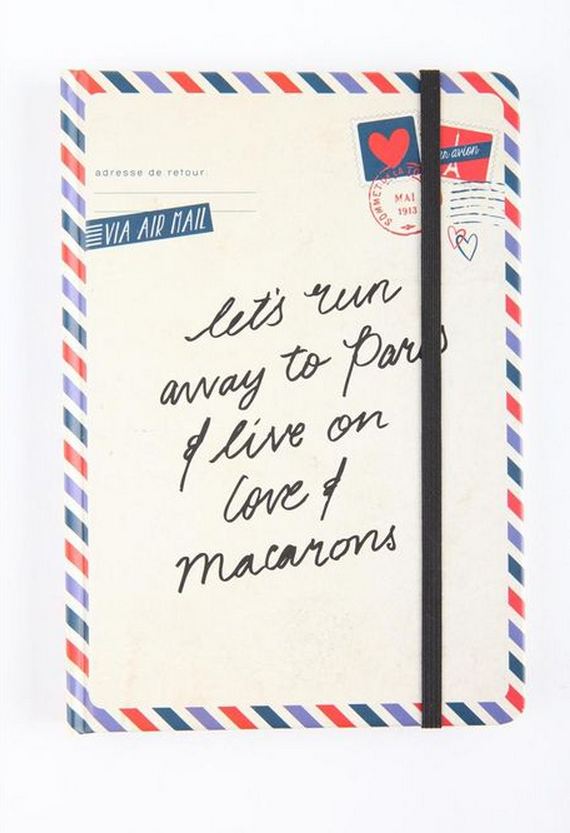 adresse de retour
VIA AIR MAIL
MAI
1913
avion
let's run
away to Paris
& live on
love &
macarons